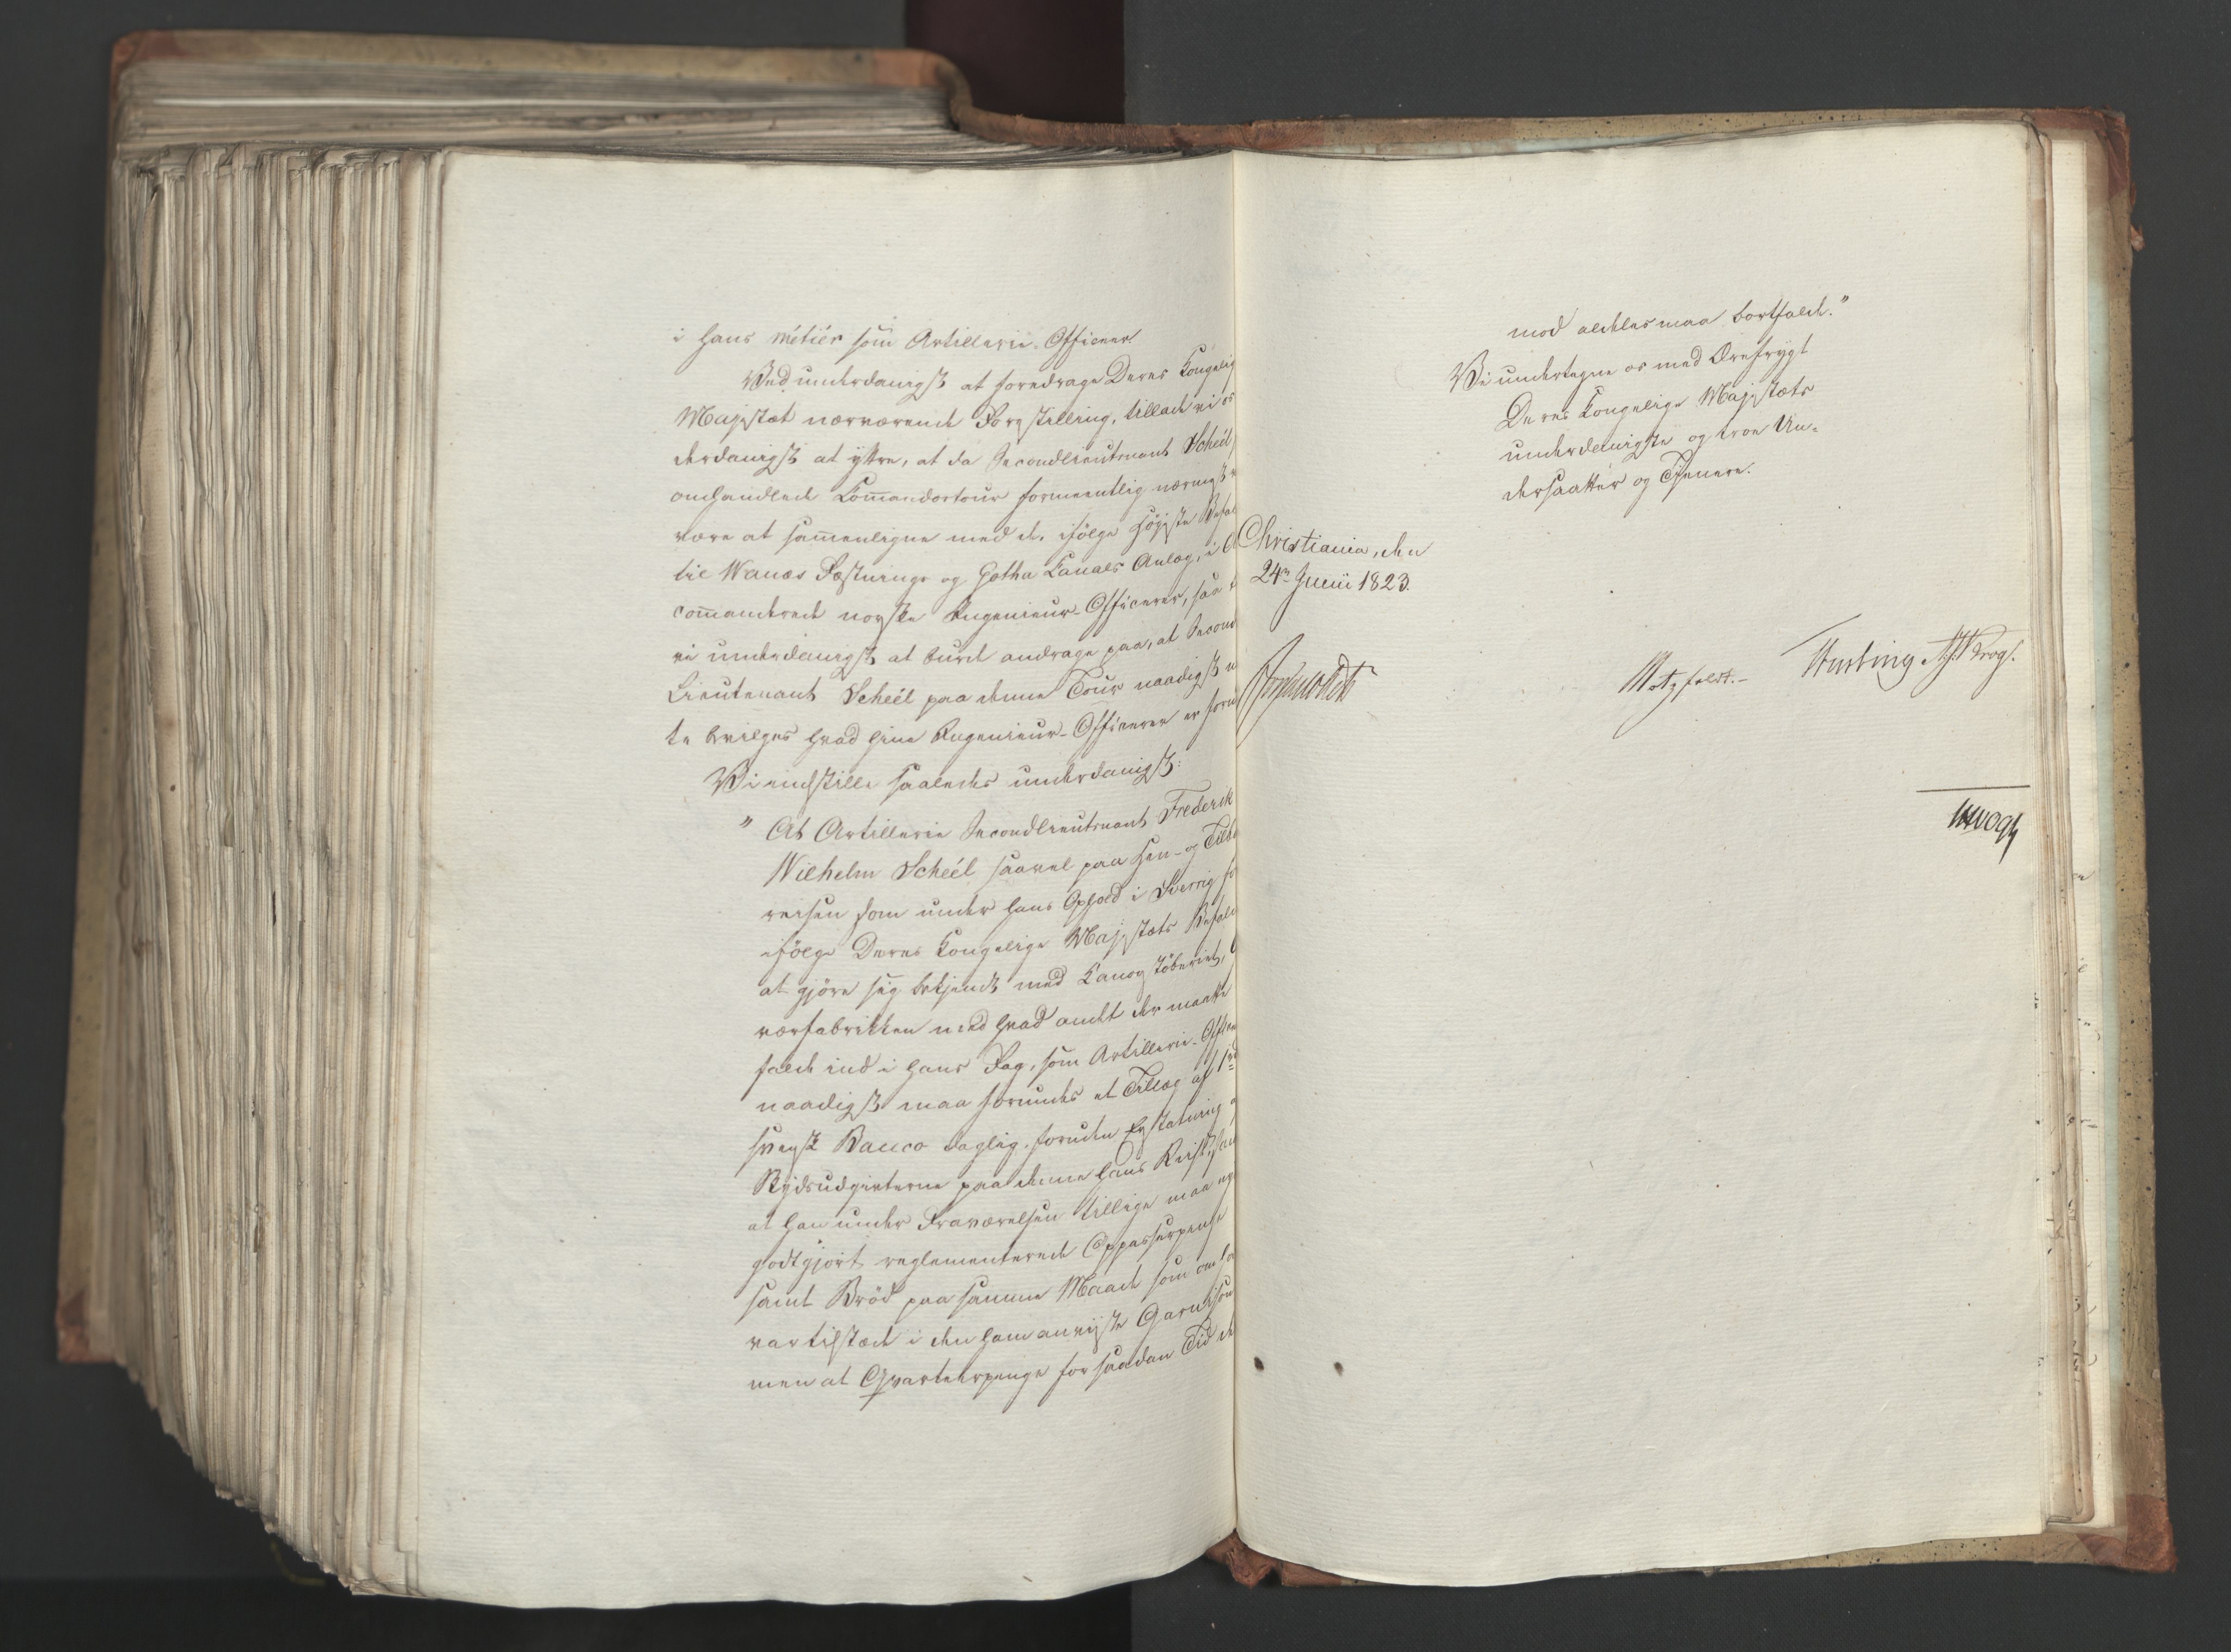 i hans métiér som Artillerie-Officeer.
Ved underdanigst at foredrage Deres Kongelig
Majestæt nærværende Forestilling, tillade vi os
derdanigst at yttre, at da Secondlieutenant Scheél,
omhandlede Commandotour formeentlig nærmest
være at sammenligne med de, ifølge Høieste Befal
til Wanæs Fæstnings og Gotha Canals Anlæg, i
commanderede norske Ingenieur-Officerer, saa
vi underdanigst at burde andrage paa, at Second
Lieutenant Scheél paa denne Tour naadigst
te bevilges hvad hine Ingenieur-Officerer er forun
Vi indstille saaledes underdanigst:
"At Artillerie Secondlieutenant Frederik
Wilhelm Scheél saavel paa Hen- og Tilba
reisen som under hans Ophold i Sverrig for
ifølge Deres Kongelige Majestæts Befali
at gjöre sig bekjendt med Canonstöberiet,
værfabrikken med hvad andet der maatte
falde ind i hans Fag, som Artillerie-Offic
naadigst maa forundes et Tillæg af 1rd
svensk Banco daglig, foruden Erstatning
Skydsudgivterne paa denne hans Reise, sam
at han under Fraværelsen tillige maa
godtgjort reglementerede Oppasserpenge
samt Bröd paa samme Maade som om ha
var tilstæde i den ham anviiste Garnison
men at Qvarteerpenge for saadan Tid de
mod aldeles maa bortfalde."
Vi undertegne os med Ærefrygt
Deres Kongelige Majestæts
underdanigste og troe Un-
dersaatter og Tjenere.
Christiania, den
24de Junii 1823.
Motzfeldt.
Krogh